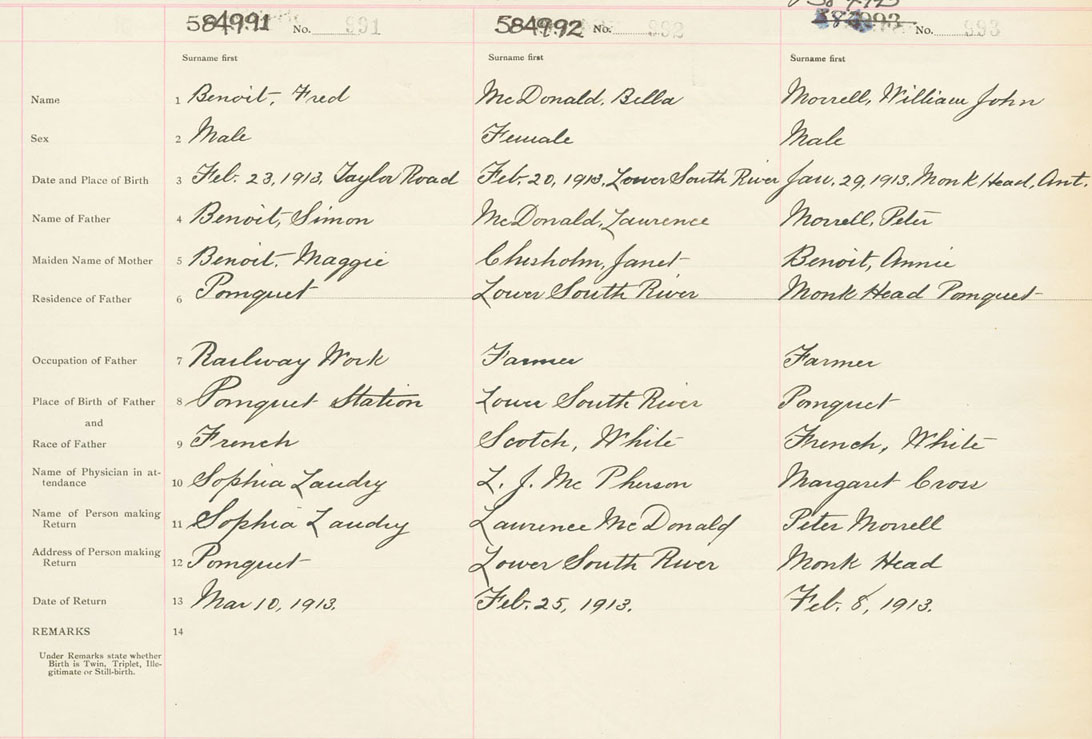 584991 No. 991 584992 No. 992 584993 No. 993
Surname first Surname first Surname first
Name 1 Benoit, Fred McDonald, Bella Morrell, William John
Sex 2 Male Female Male
Date and Place of Birth 3 Feb. 23, 1913, Taylor Road Feb. 20, 1913, Lower South River Jan. 29, 1913, Monk Head, Ant.
Name of Father 4 Benoit, Simon McDonald, Laurence Morrell, Peter
Maiden Name of Mother 5 Benoit, Maggie Chisholm, Janet Benoit, Annie
Residence of Father 6 Pomquet Lower South River Monk Head Pomquet
Occupation of Father 7 Railway Work Farmer Farmer
Place of Birth of Father 8 Pomquet Station Lower South River Pomquet
and
Race of Father 9 French Scotch, White French, White
Name of Physician in at-
tendance 10 Sophia Landry L. J. McPherson Margaret Cross
Name of Person making
Return 11 Sophia Landry Laurence McDonald Peter Morrell
Address of Person making
Return 12 Pomquet Lower South River Monk Head
Date of Return 13 Mar 10, 1913. Feb. 25, 1913. Feb. 8, 1913.
REMARKS 14
Under Remarks state whether
Birth is Twin, Triplet, Ille-
gitimate or Still-birth.